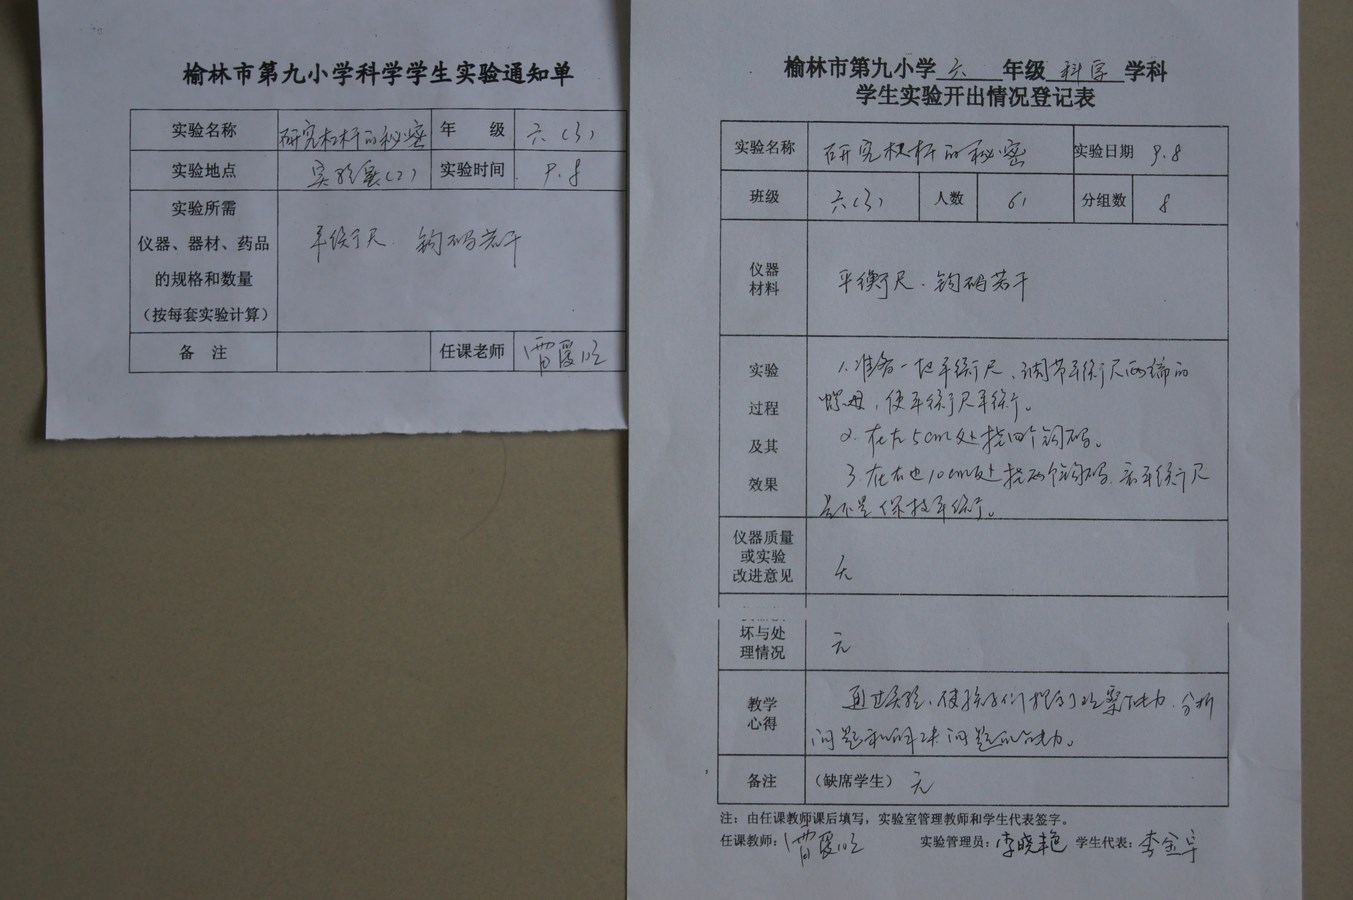 榆林市第九小学科学学生实验通知单
实验名称 研究杠杆的秘密 年 级 六(3)
实验地点 实验室(2) 实验时间 9.8
实验所需
仪器、器材、药品
的规格和数量
(按每套实验计算)
平衡尺、钩码若干
备 注 任课老师 雷霞
榆林市第九小学 六 年级 科学 学科
学生实验开出情况登记表
实验名称 研究杠杆的秘密 实验日期 9.8
班级 六(3) 人数 61 分组数 8
仪器
材料
平衡尺、钩码若干
实验
过程
及其
效果
1.准备一把平衡尺,调节平衡尺两端的
螺母,使平衡尺平衡。
2.在左5cm处挂四个钩码。
3.在右边10cm处挂两个钩码,看平衡尺
是不是保持平衡。
仪器质量
或实验
改进意见
无
坏与处
理情况
无
教学
心得
通过实验,使孩子们提高了观察能力、分析
问题和解决问题的能力。
备注 (缺席学生) 无
注:由任课教师课后填写,实验室管理教师和学生代表签字。
任课教师:雷霞 实验管理员:李晓艳 学生代表:李金